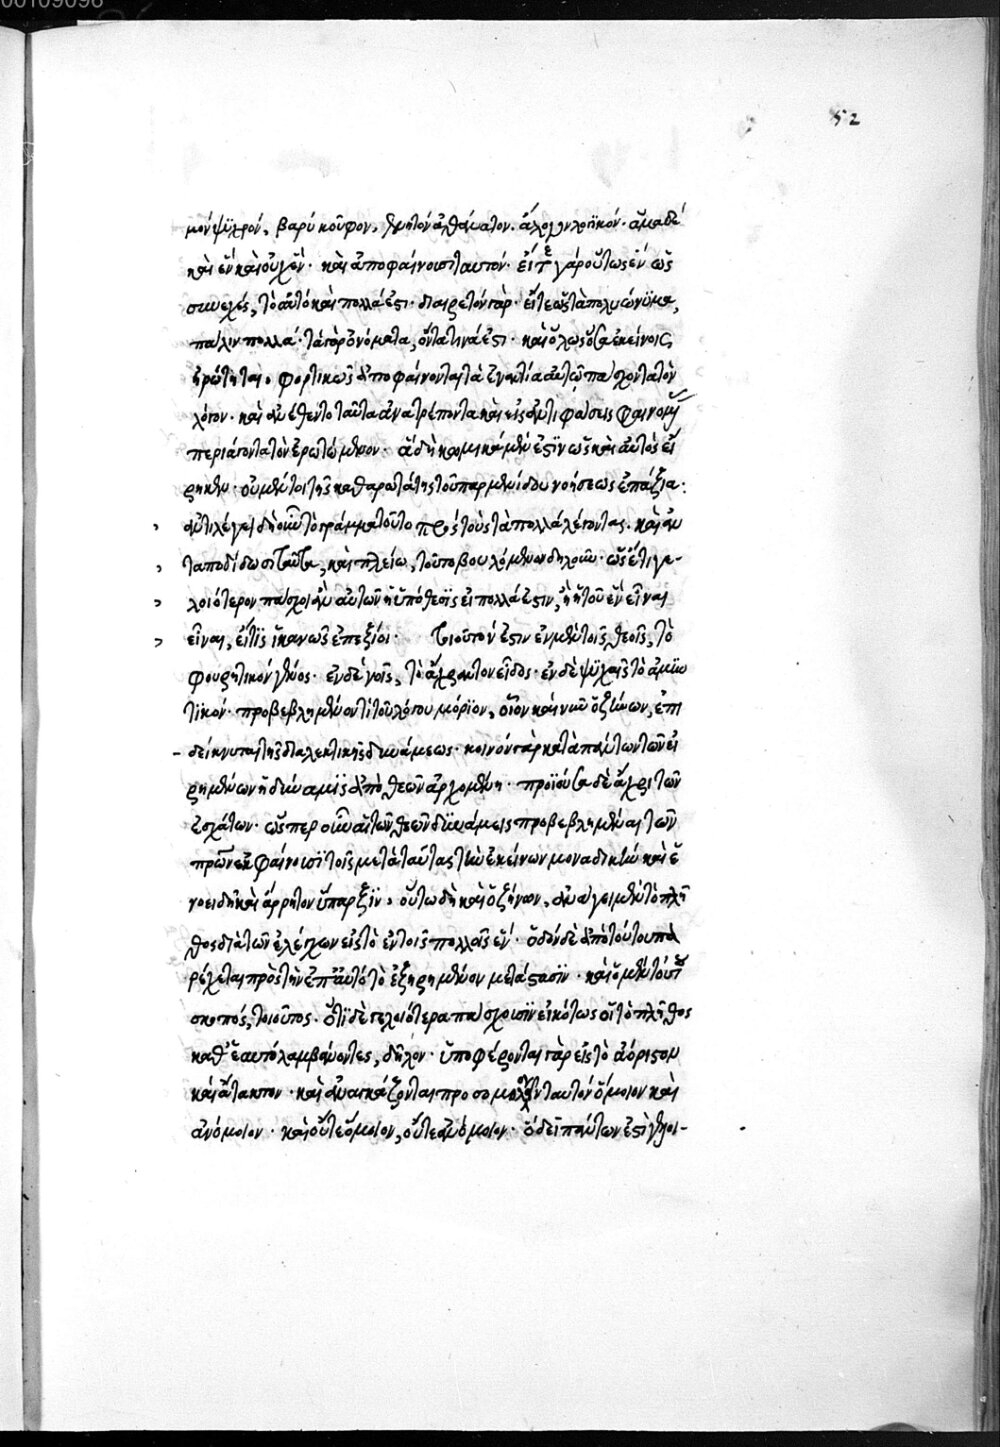 00109098
52
μὸν ψυχρόν, βαρὺ κοῦφον, θνητὸν ἀθάνατον. ἄλογον λογικόν. ἅμα δὲ
καὶ ἓν καὶ οὐχ ἕν. καὶ ἀποφαίνουσι ταυτόν. εἴτε γὰρ οὕτως ἓν ὡς
συνεχές, τὸ αὐτὸ καὶ πολλά ἐστι. διαιρετὸν γάρ. εἴτε ὡς τὰ πολυώνυμα,
πάλιν πολλά. τὰ γὰρ ὀνόματα, ὄντα τινά ἐστι. καὶ ὅλως ὅσα ἐκείνοις
ἠρώτηται. φορτικῶς ἀποφαίνονται τὰ ἐναντία αὐτῷ πάσχοντα τὸν
λόγον. καὶ ἂν ἔθεντο ταῦτα ἀνατρέποντα καὶ εἰς ἀντιφάσεις φαινομ
περιάγοντα τὸν ἐρωτώμενον. ἃ δὴ κωμικὰ μέν ἐστιν ὡς καὶ αὐτὸς εἴ
ρηκεν. οὐ μέντοι τῆς καθαρωτάτης τοῦ παρμενίδου νοήσεως ἐπάξια:
ἀντιλέγει δὴ οὖν τὸ γράμμα τοῦτο πρὸς τοὺς τὰ πολλὰ λέγοντας. καὶ ἀν
ταποδίδωσι ταῦτα, καὶ πλείω, τοῦτο βουλόμενον δηλοῦν. ὡς ἔτι γε-
λοιότερον πάσχοι ἂν αὐτῶν ἡ ὑπόθεσις εἰ πολλά ἐστιν, ἢ ἡ τοῦ ἓν εἶναι
εἶναι, εἴ τις ἱκανῶς ἐπεξίοι. τοιοῦτόν ἐστιν ἐν μὲν τοῖς θεοῖς, τὸ
φρουρητικὸν γένος. ἐν δὲ νοῖς, τὸ ἄχραντον εἶδος. ἐν δὲ ψυχαῖς τὸ ἀμυν
τικόν. προβεβλημένον τι τοῦ λόγου μόριον, οἷον καὶ νῦν ὁ ζήνων, ἐπι
δείκνυται τῆς διαλεκτικῆς δυνάμεως. κοινὸν γὰρ κατὰ πάντων τῶν εἰ
ρημένων ἡ δύναμις ἀπὸ θεῶν ἀρχομένη. προϊοῦσα δὲ ἄχρι τῶν
ἐσχάτων. ὥσπερ οὖν αἱ τῶν θεῶν δυνάμεις προβεβλημέναι τῶν
πρώτων ἐκφαίνουσι τοῖς μετὰ ταύτας τὴν ἐκείνων μοναδικὴν καὶ ἑ
νοειδῆ καὶ ἄρρητον ὕπαρξιν, οὕτω δὴ καὶ ὁ ζήνων, ἀνάγει μὲν τὸ πλῆ
θος διὰ τῶν ἐλέγχων εἰς τὸ ἐν τοῖς πολλοῖς ἕν. ὁδὸν δὲ ἀπὸ τούτου πα
ρέχεται πρὸς τὴν ἐπ' αὐτὸ τὸ ἐξῃρημένον μετάστασιν. καὶ ὁ μὲν τούτου
σκοπός, τοιοῦτος. ὅτι δὲ γελοιότερα πάσχουσιν εἰκότως οἱ τὸ πλῆθος
καθ' ἑαυτὸ λαμβάνοντες, δῆλον. ὑποφέρονται γὰρ εἰς τὸ ἀόριστον
καὶ ἄτακτον. καὶ ἀναγκάζονται προσομολογεῖν ταυτὸν ὅμοιον καὶ
ἀνόμοιον. καὶ οὔτε ὅμοιον, οὔτε ἀνόμοιον. ὃ δεῖ πάντων ἐστὶ γελοι-